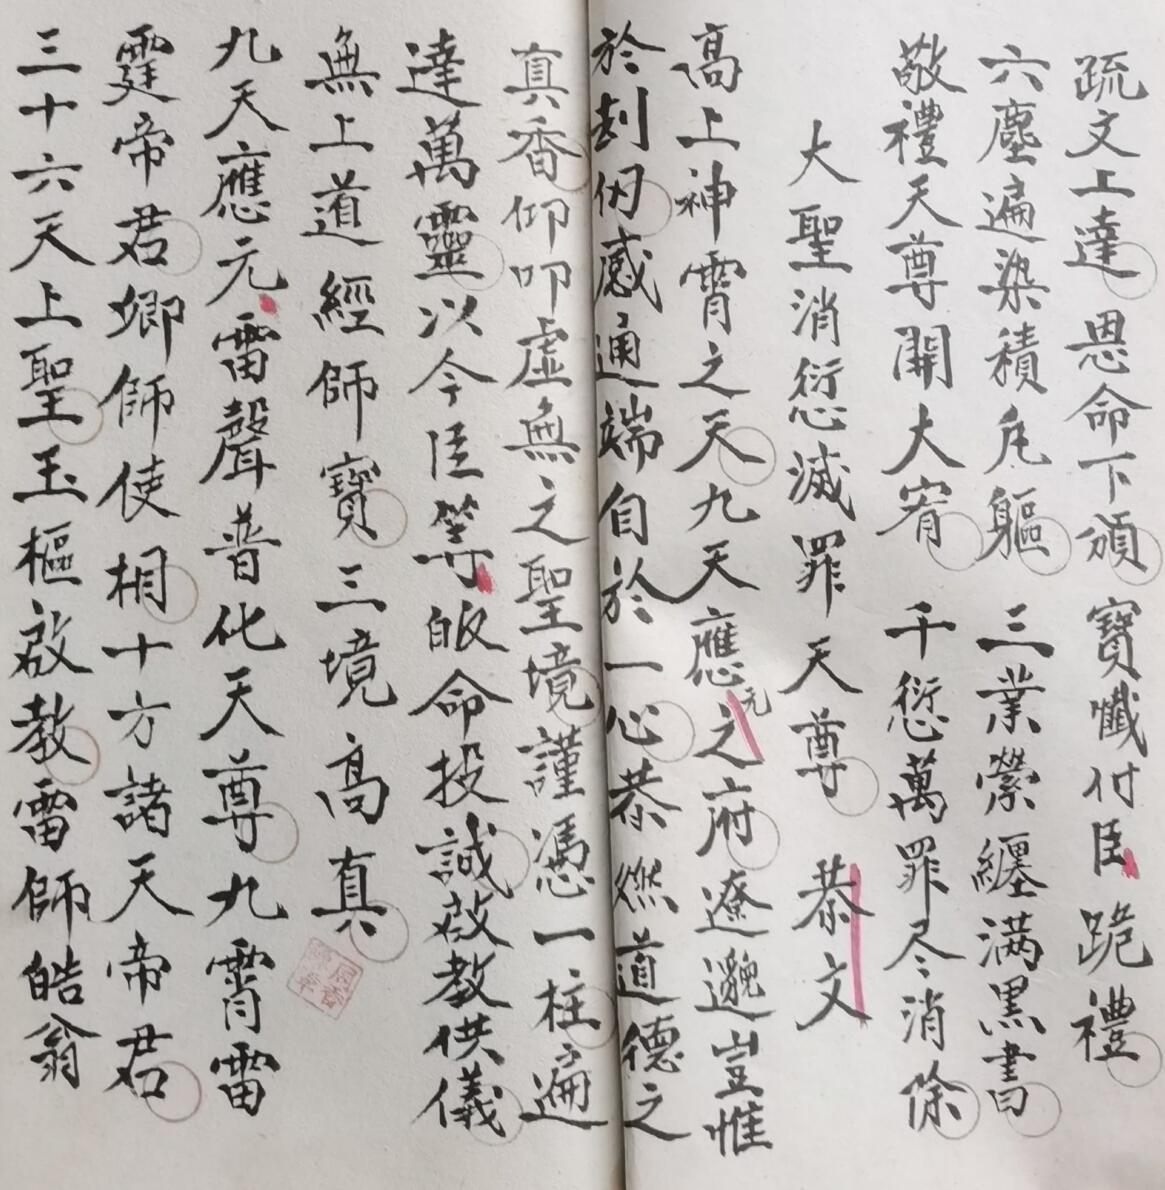 疏文上達恩命下頒寶懺付臣跪禮
六塵遍染積凡軀三業縈纏满黑書
敬禮天尊開大宥千愆萬罪尽消除
大聖消愆滅罪天尊恭文
高上神霄之天九天應元之府遼邈豈惟
於刦仞感通端自於一心恭燃道德之
真香仰叩虛無之聖境謹憑一柱遍
達萬靈以今臣等皈命投誠啟教供儀
無上道經師寶三境高真
九天應元雷聲普化天尊九霄雷
霆帝君卿師使相十方諸天帝君
三十六天上聖玉樞啟教雷師皓翁